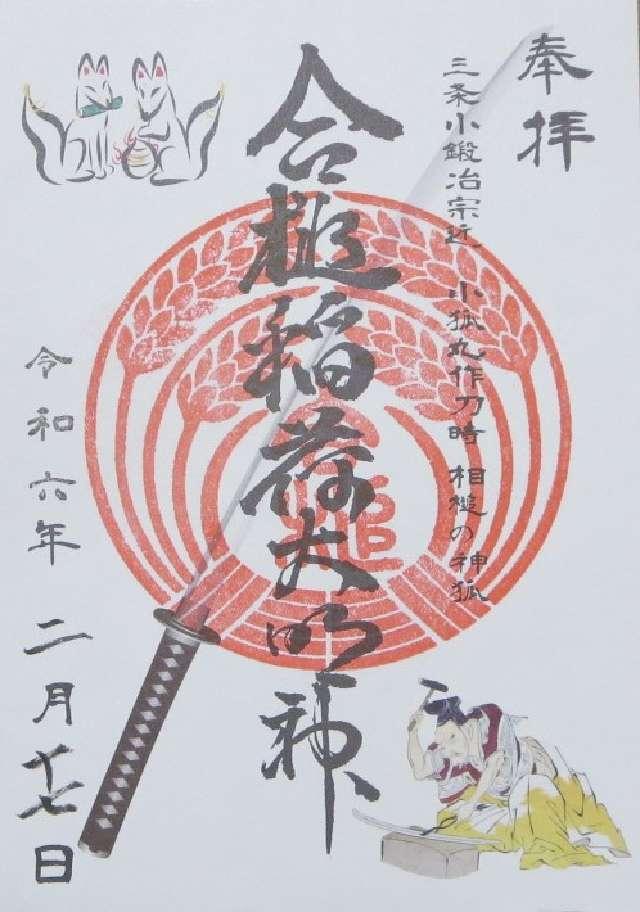 奉拝
三条小鍛冶宗近 小狐丸作刀時 相槌の神狐
合槌稲荷大明神
令和六年 二月十七日